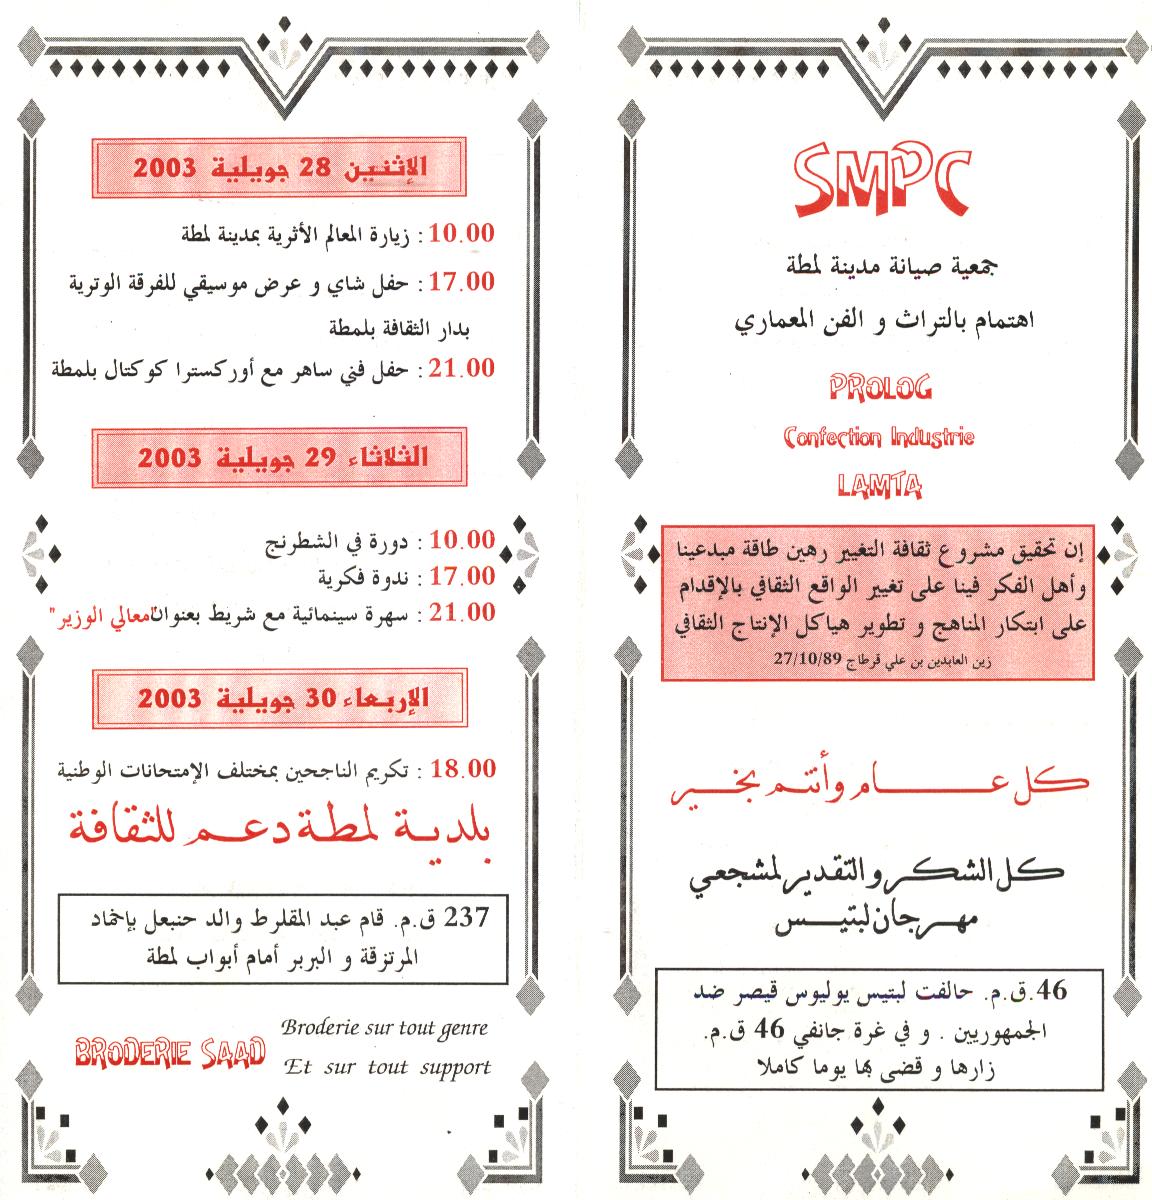 SMPC
جمعية صيانة مدينة لمطة
اهتمام بالتراث و الفن المعماري
PROLOG
Confection Industrie
LAMTA
إن تحقيق مشروع ثقافة التغيير رهين طاقة مبدعينا
وأهل الفكر فينا على تغيير الواقع الثقافي بالإقدام
على ابتكار المناهج و تطوير هياكل الإنتاج الثقافي
زين العابدين بن علي قرطاج 27/10/89
كل عـــام وأنتم بخير
كل الشكر والتقدير لمشجعي
مهرجان لبتيس
46 ق.م. حالفت لبتيس يوليوس قيصر ضد
الجمهوريين . و في غرة جانفي 46 ق.م.
زارها و قضى بها يوما كاملا
الإثنين 28 جويلية 2003
10.00 : زيارة المعالم الأثرية بمدينة لمطة
17.00 : حفل شاي و عرض موسيقي للفرقة الوترية
بدار الثقافة بلمطة
21.00 : حفل فني ساهر مع أوركسترا كوكتال بلمطة
الثلاثاء 29 جويلية 2003
10.00 : دورة في الشطرنج
17.00 : ندوة فكرية
21.00 : سهرة سينمائية مع شريط بعنوان "معالي الوزير"
الإربعاء 30 جويلية 2003
18.00 : تكريم الناجحين بمختلف الإمتحانات الوطنية
بلدية لمطة دعم للثقافة
237 ق.م. قام عبد المقلرط والد حنبعل بإخماد
المرتزقة و البربر أمام أبواب لمطة
BRODERIE SAAD
Broderie sur tout genre
Et sur tout support